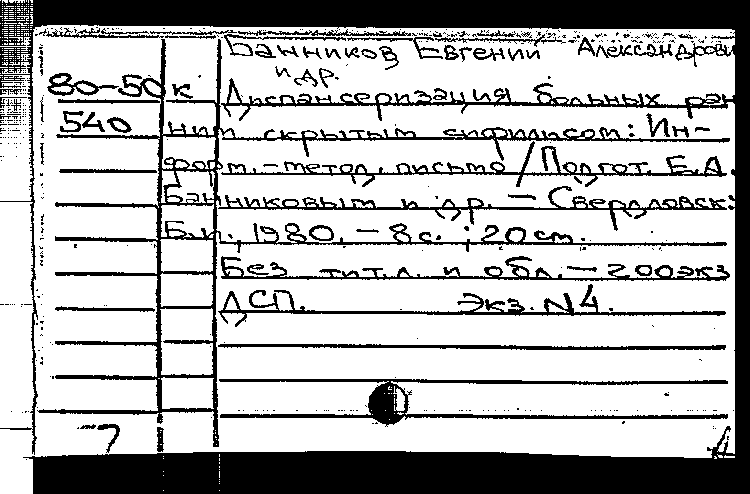 Банников Евгений Александрови
и др.
80-50к Диспансеризация больных ран
540 ним скрытым сифилисом: Ин-
форм.-метод. письмо / Подгот. Е.А.
Банниковым и др. — Свердловск:
Б.и., 1980. — 8с. ; 20 см.
Без тит.л. и обл. — 200экз
ДСП. Экз. N4.
7